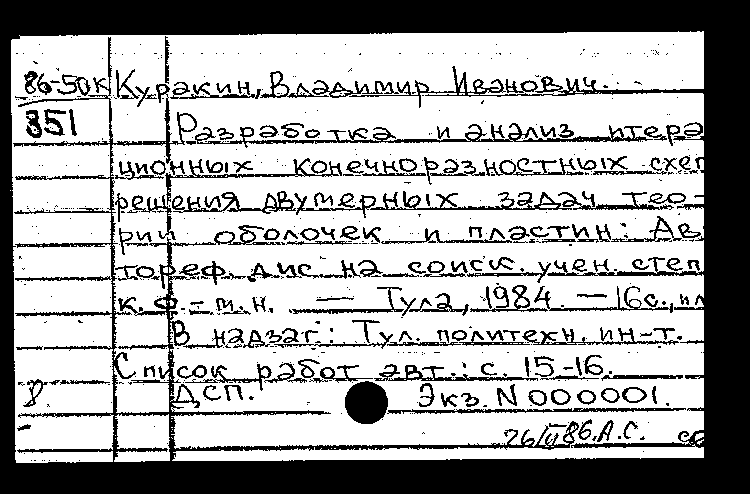 86-50к Куракин, Владимир Иванович.
351 Разработка и анализ итера
ционных конечноразностных схем
решения двумерных задач тео-
рии оболочек и пластин: Ав
тореф. дис на соиск. учен. степ
к. ф.-м.н. — Тула, 1984. — 16с., ил
В надзаг: Тул. политехн. ин-т.
Список работ авт.: с. 15-16.
8. ДСП. Экз. N 000001.
86. А.С.